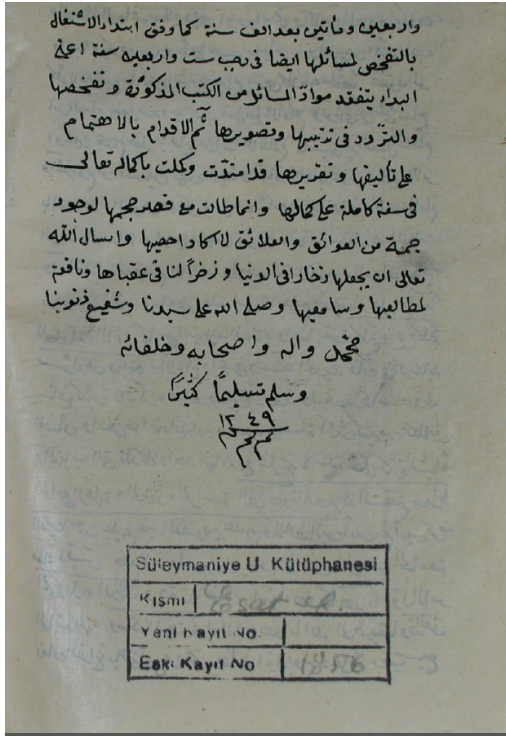 واربعين ومأتين بعد الف سنة كما وفق ابتداء الاشتغال
بالتفخص لمسائلها ايضا فى رجب ست واربعين سنة اعنى
ابتداء يتفقد مواد المسائل من الكتب المذكورة وتفخصها
والتردد فى ترتيبها وتصويرها ثم الاقدام بالاهتمام
على تأليفها وتقريرها قد امتدت وكملت باكماله تعالى
فى سنة كاملة على كمالها وانما طالت مع قصد حجمها لوجود
جمة من العوائق والعلائق لا اكاد احصيها واسال الله
تعالى ان يجعلها ذخارا فى الدنيا وزخرا لنا فى عقباها ونافعة
لمطالعيها وسامعيها وصلى الله على سيدنا وشفيع ذنوبنا
محمد واله واصحابه وخلفائه
وسلم تسليما كثيرا
١٢٤٩
Süleymaniye U. Kütüphanesi
Kısmı
Yeni Kayıt No.
Eski Kayıt No